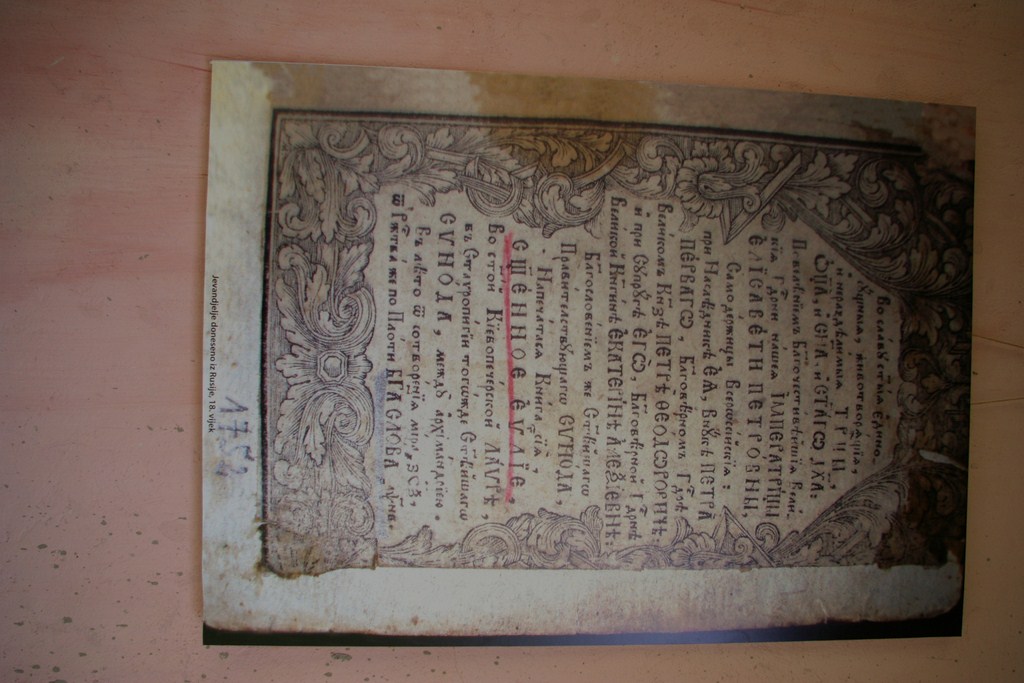 Во славꙋ ст҃ыѧ є҆ди́но-
сꙋ́щныѧ, животворѧ́щїѧ,
и нераздѣли́мыѧ Трⷪ҇цы,
Ѻ҆ц҃а̀, и҆ Сн҃а, и҆ Ст҃а́гѡ Дх҃а:
Повелѣ́нїемъ Бл҃гочести́вѣйшїѧ Вели́-
кїѧ Гдⷭ҇рни на́шеѧ І҆мпера́трїцы
Є҆лїсаве́ты Петро́вны,
Самоде́ржицы Всерѡссі́йскїѧ:
при Наслѣ́дникѣ є҆ѧ̀, Внꙋ́кѣ Петра̀
Пе́рвагѡ, Бл҃говѣ́рномъ Гдⷭ҇рѣ
Вели́комъ Кн҃зѣ Пе́трѣ Ѳео́дѡровичѣ:
и҆ при Сꙋпрꙋ́гѣ є҆гѡ̀, Бл҃говѣ́рной Гдⷭ҇рнѣ
Вели́кой Кн҃ги́нѣ Є҆катері́нѣ А҆леѯі́евнѣ:
Бл҃гослове́нїемъ же Ст҃ѣ́йшагѡ
Прави́телствꙋющагѡ Сѵно́да,
Напеча́тасѧ Кни́га сїѧ̀,
Сщ҃е́нное Є҆ѵ҃лїе,
во ст҃о́й Кїевопече́рской Ла́ѵрѣ,
въ Стаѵропи́гїи тогѡ́жде Ст҃ѣ́йшагѡ
Сѵно́да, междꙋ̀ а҆рхїмандрі́ею.
Въ лѣ́то ѿ сотворе́нїѧ мі́ра, ҂зс҃з,
ѿ Ржⷭ҇тва́ же по Пло́ти Бг҃а Сло́ва
1752
Jevandjelje doneseno iz Rusije, 18. vijek